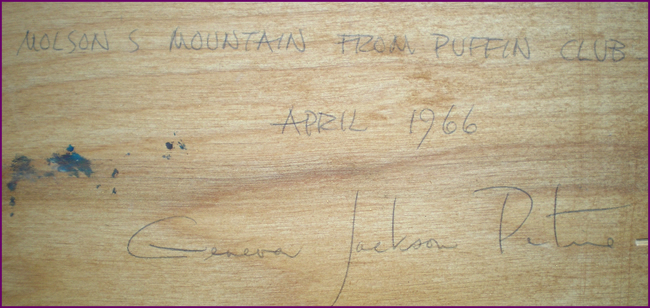 MOLSON S MOUNTAIN FROM PUFFIN CLUB
APRIL 1966
Geneva Jackson